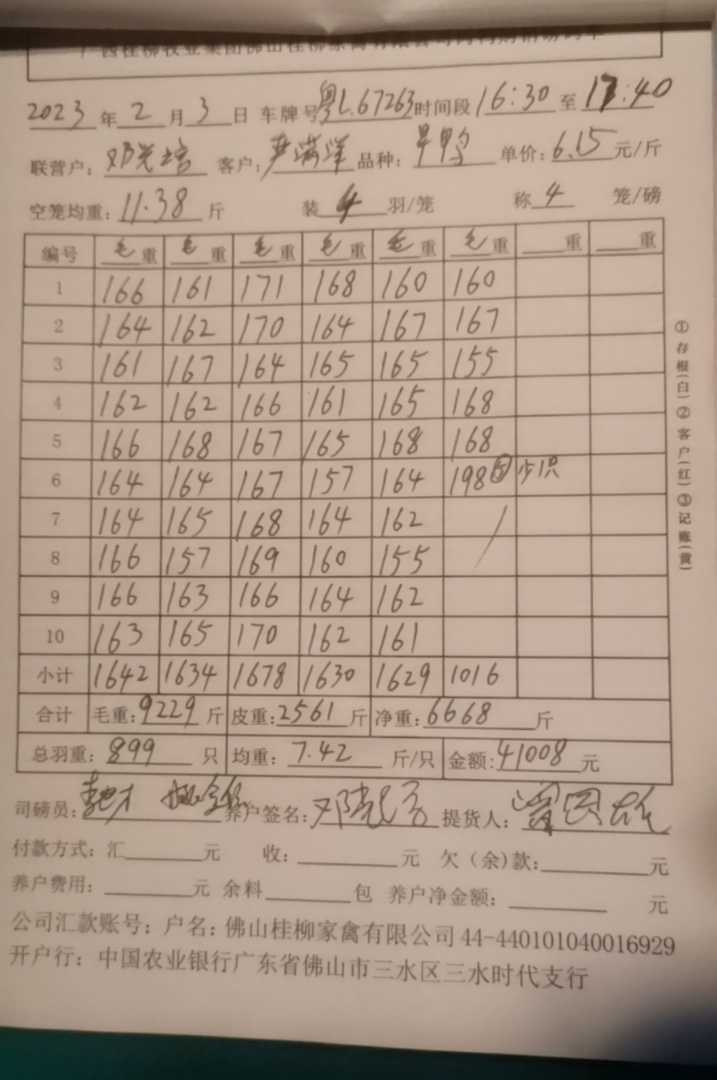 广西桂柳牧业集团佛山桂柳家禽有限公司
2023年2月3日 车牌号粤L67263时间段16:30至17:40
联营户:邓光培 客户:尹满洋 品种:旱鸭 单价:6.15元/斤
空笼均重:11.38斤 装4羽/笼 称4笼/磅
编号 毛重 毛重 毛重 毛重 毛重 毛重 重 重
1 166 161 171 168 160 160
2 164 162 170 164 167 167
3 161 167 164 165 165 155
4 162 162 166 161 165 168
5 166 168 167 165 168 168
6 164 164 167 157 164 198⑤ 少1只
7 164 165 168 164 162
8 166 157 169 160 155
9 166 163 166 164 162
10 163 165 170 162 161
小计 1642 1634 1678 1630 1629 1016
合计 毛重:9229斤 皮重:2561斤 净重:6668斤
总羽重:899只 均重:7.42斤/只 金额:41008元
司磅员: 养户签名: 提货人:
付款方式:汇 元 收: 元 欠(余)款: 元
养户费用: 元 余料 包 养户净金额: 元
公司汇款账号:户名:佛山桂柳家禽有限公司 44-440101040016929
开户行:中国农业银行广东省佛山市三水区三水时代支行
①存根(白)②客户(红)③记账(黄)